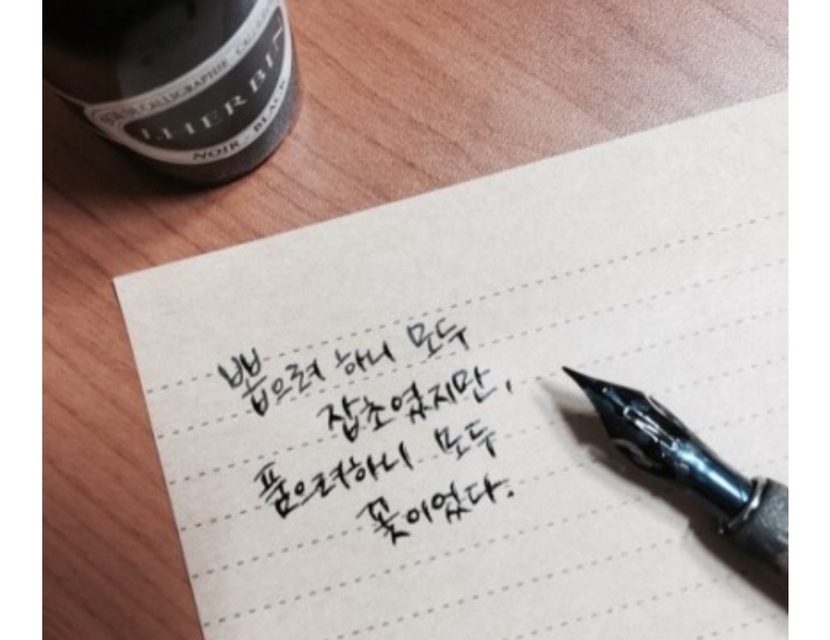 CALLIGRAPHIE
J.HERBIN
NOIR - BLACK
뽑으려 하니 모두
잡초였지만,
품으려하니 모두
꽃이었다.